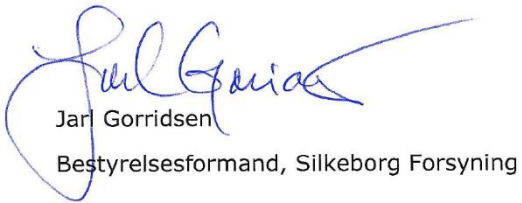 Jarl Gorridsen
Jarl Gorridsen
Bestyrelsesformand, Silkeborg Forsyning